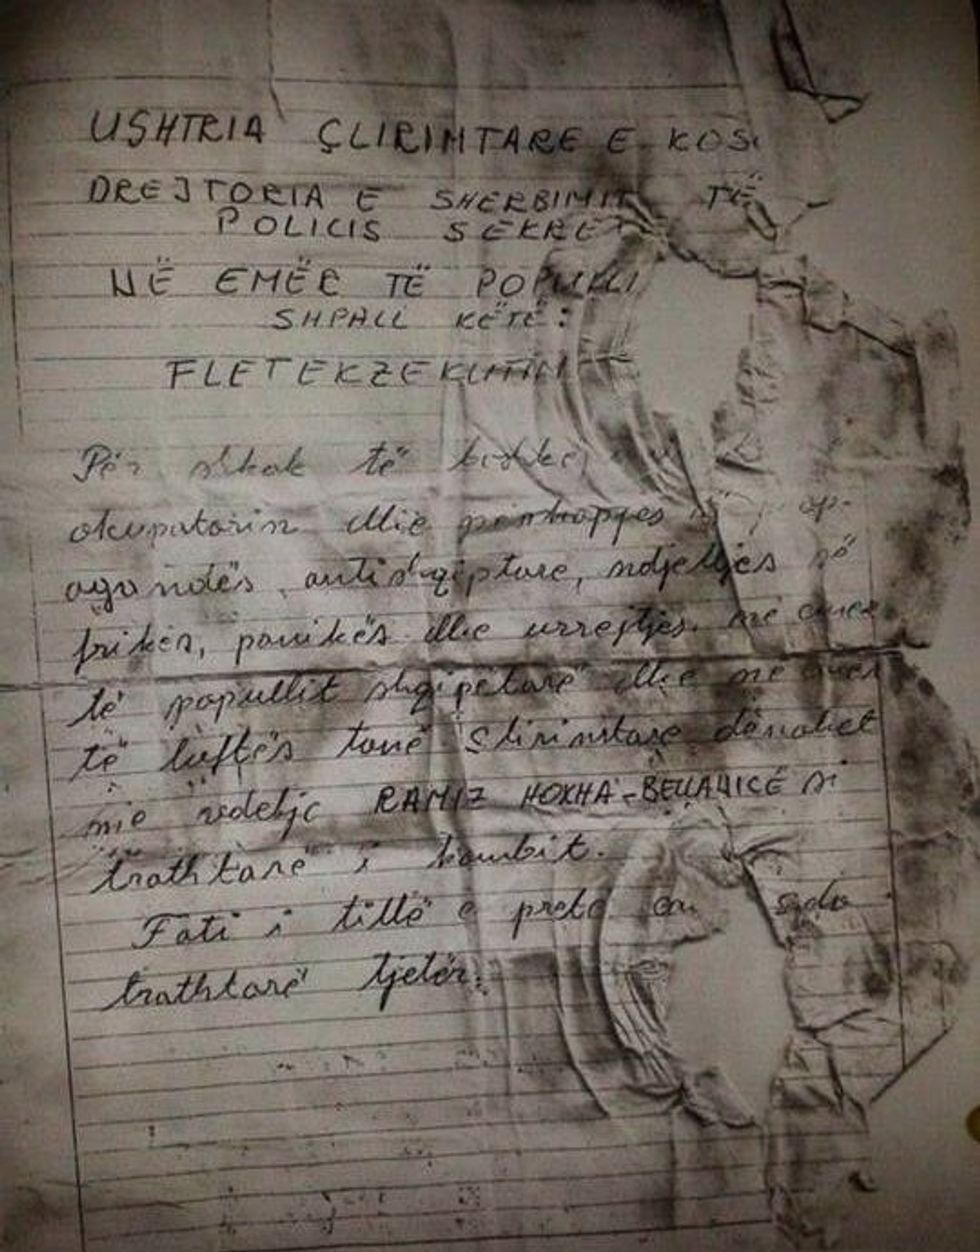 USHTRIA ÇLIRIMTARE E KOS
DREJTORIA E SHERBIMIT TË
POLICIS SEKRET
NË EMËR TË POPULLI
SHPALL KËTË:
FLETEKZEKUTIM
Për shkak të
okupatorin dhe përkrapjes
agandës antishqiptare, ndjelljes së
frikës, panikës dhe urrejtjes. në emër
të popullit shqipëtarë dhe në emër
të luftës tonë çlirimtare dënohet
me vdekje RAMIZ HOXHA-BELLANICË si
trathtarë i kombit.
Fati i tillë e pret çdo
trathtarë tjetër.